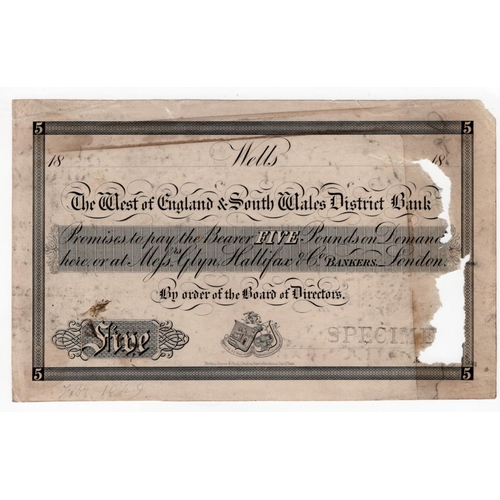 5 5
18 Wells 18
The West of England & South Wales District Bank
Promises to pay the Bearer FIVE Pounds on Demand
here, or at Messrs. Glyn, Hallifax & Co. BANKERS_London.
By order of the Board of Directors.
Five
SPECIME
5 5